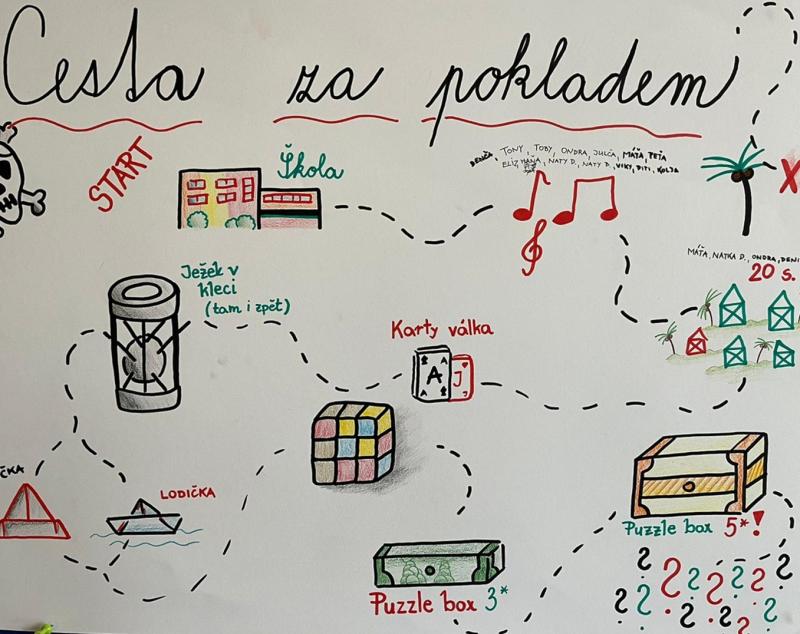 Cesta za pokladem
START
Škola
DENČA, TONY, TOBY, ONDRA, JULČA, MÁŤA, PEŤA
NATY D., NATY D., VIKY, PITI, KOLJA
MÁŤA, NATKA D., ONDRA, DENI
20 s.
X
Ježek v
kleci
(tam i zpět)
Karty válka
A
J
ČKA
LODIČKA
Puzzle box 5*!
Puzzle box 3*